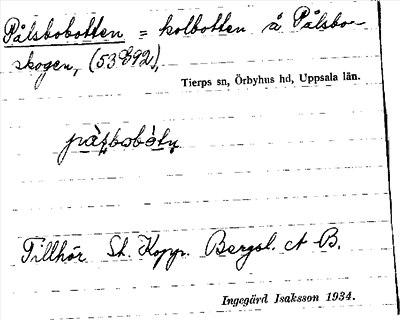 Pålsbobotten = kolbotten å Pålsbo-
skogen, (53 892),
Tierps sn, Örbyhus hd, Uppsala län.
Tillhör St. Kopp. Bergsl. A B.
Ingegärd Isaksson 1934.